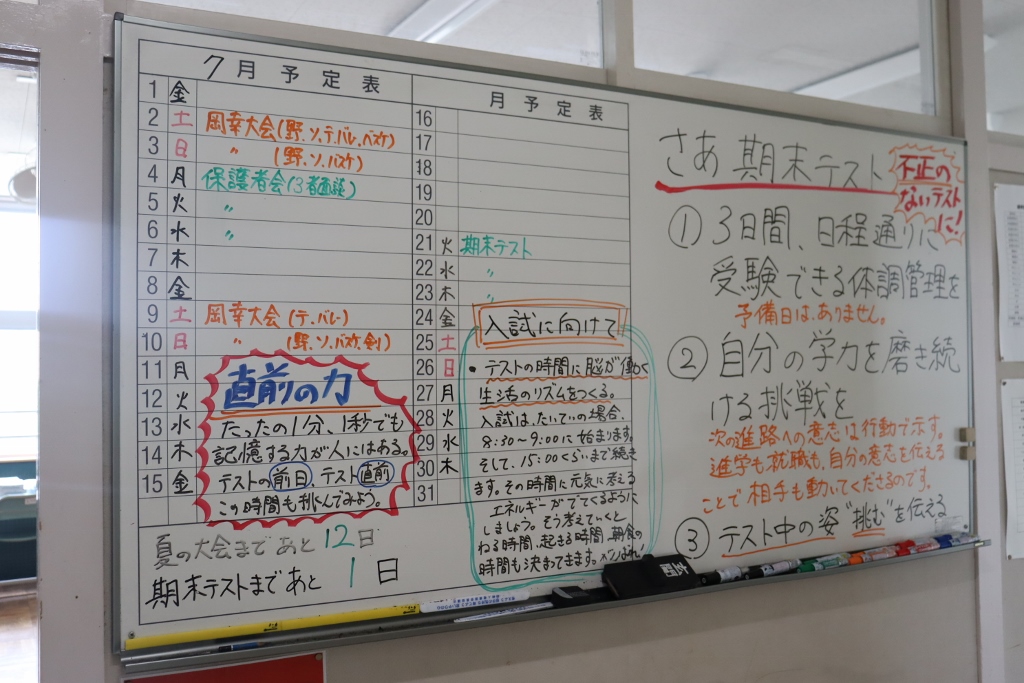 7月予定表
1 金
2 土 岡幸大会(野、ソ、テ、バレ、バスケ)
3 日 〃 (野、ソ、バスケ)
4 月 保護者会(3者面談)
5 火 〃
6 水 〃
7 木
8 金
9 土 岡幸大会(テ、バレ)
10 日 〃 (野、ソ、バスケ、剣)
11 月
12 火
13 水
14 木
15 金
直前の力
たったの1分、1秒でも
記憶する力が人にはある。
テストの前日、テスト直前
この時間も挑んでみよう。
夏の大会まであと12日
期末テストまであと 1日
月予定表
16
17
18
19
20
21 火 期末テスト
22 水 〃
23 木 〃
24 金
25 土
26 日
27 月
28 火
29 水
30 木
31
入試に向けて
・テストの時間に脳が働く
生活のリズムをつくる。
入試は、たいていの場合、
8:30~9:00に始まります。
そして、15:00くらいまで続き
ます。その時間に元気に考える
エネルギーがでてくるように
しましょう。そう考えていくと
ねる時間、起きる時間、朝食の
時間も決まってきます。がんばれ!
さあ 期末テスト
不正の
ないテスト
に!
① 3日間、日程通りに
受験できる体調管理を
予備日はありません。
② 自分の学力を磨き続
ける挑戦を
次の進路への意志は行動で示す。
進学も就職も、自分の意志を伝える
ことで相手も動いてくださるのです。
③ テスト中の姿"挑む"を伝える